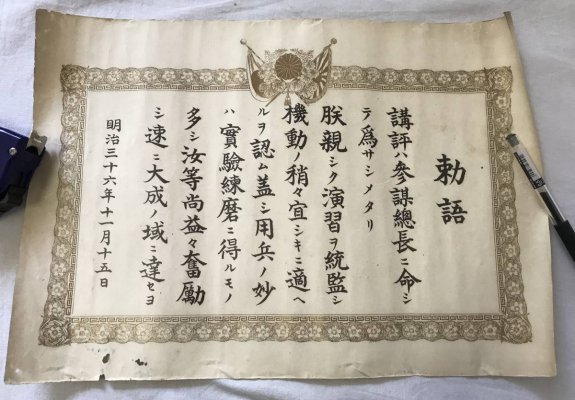 勅語
講評ハ參謀總長ニ命シ
テ爲サシメタリ
朕親シク演習ヲ統監シ
機動ノ稍々宜シキニ適ヘ
ルヲ認ム盖シ用兵ノ妙
ハ實驗練磨ニ得ルモノ
多シ汝等尚益々奮勵
シ速ニ大成ノ域ニ達セヨ
明治三十六年十一月十五日